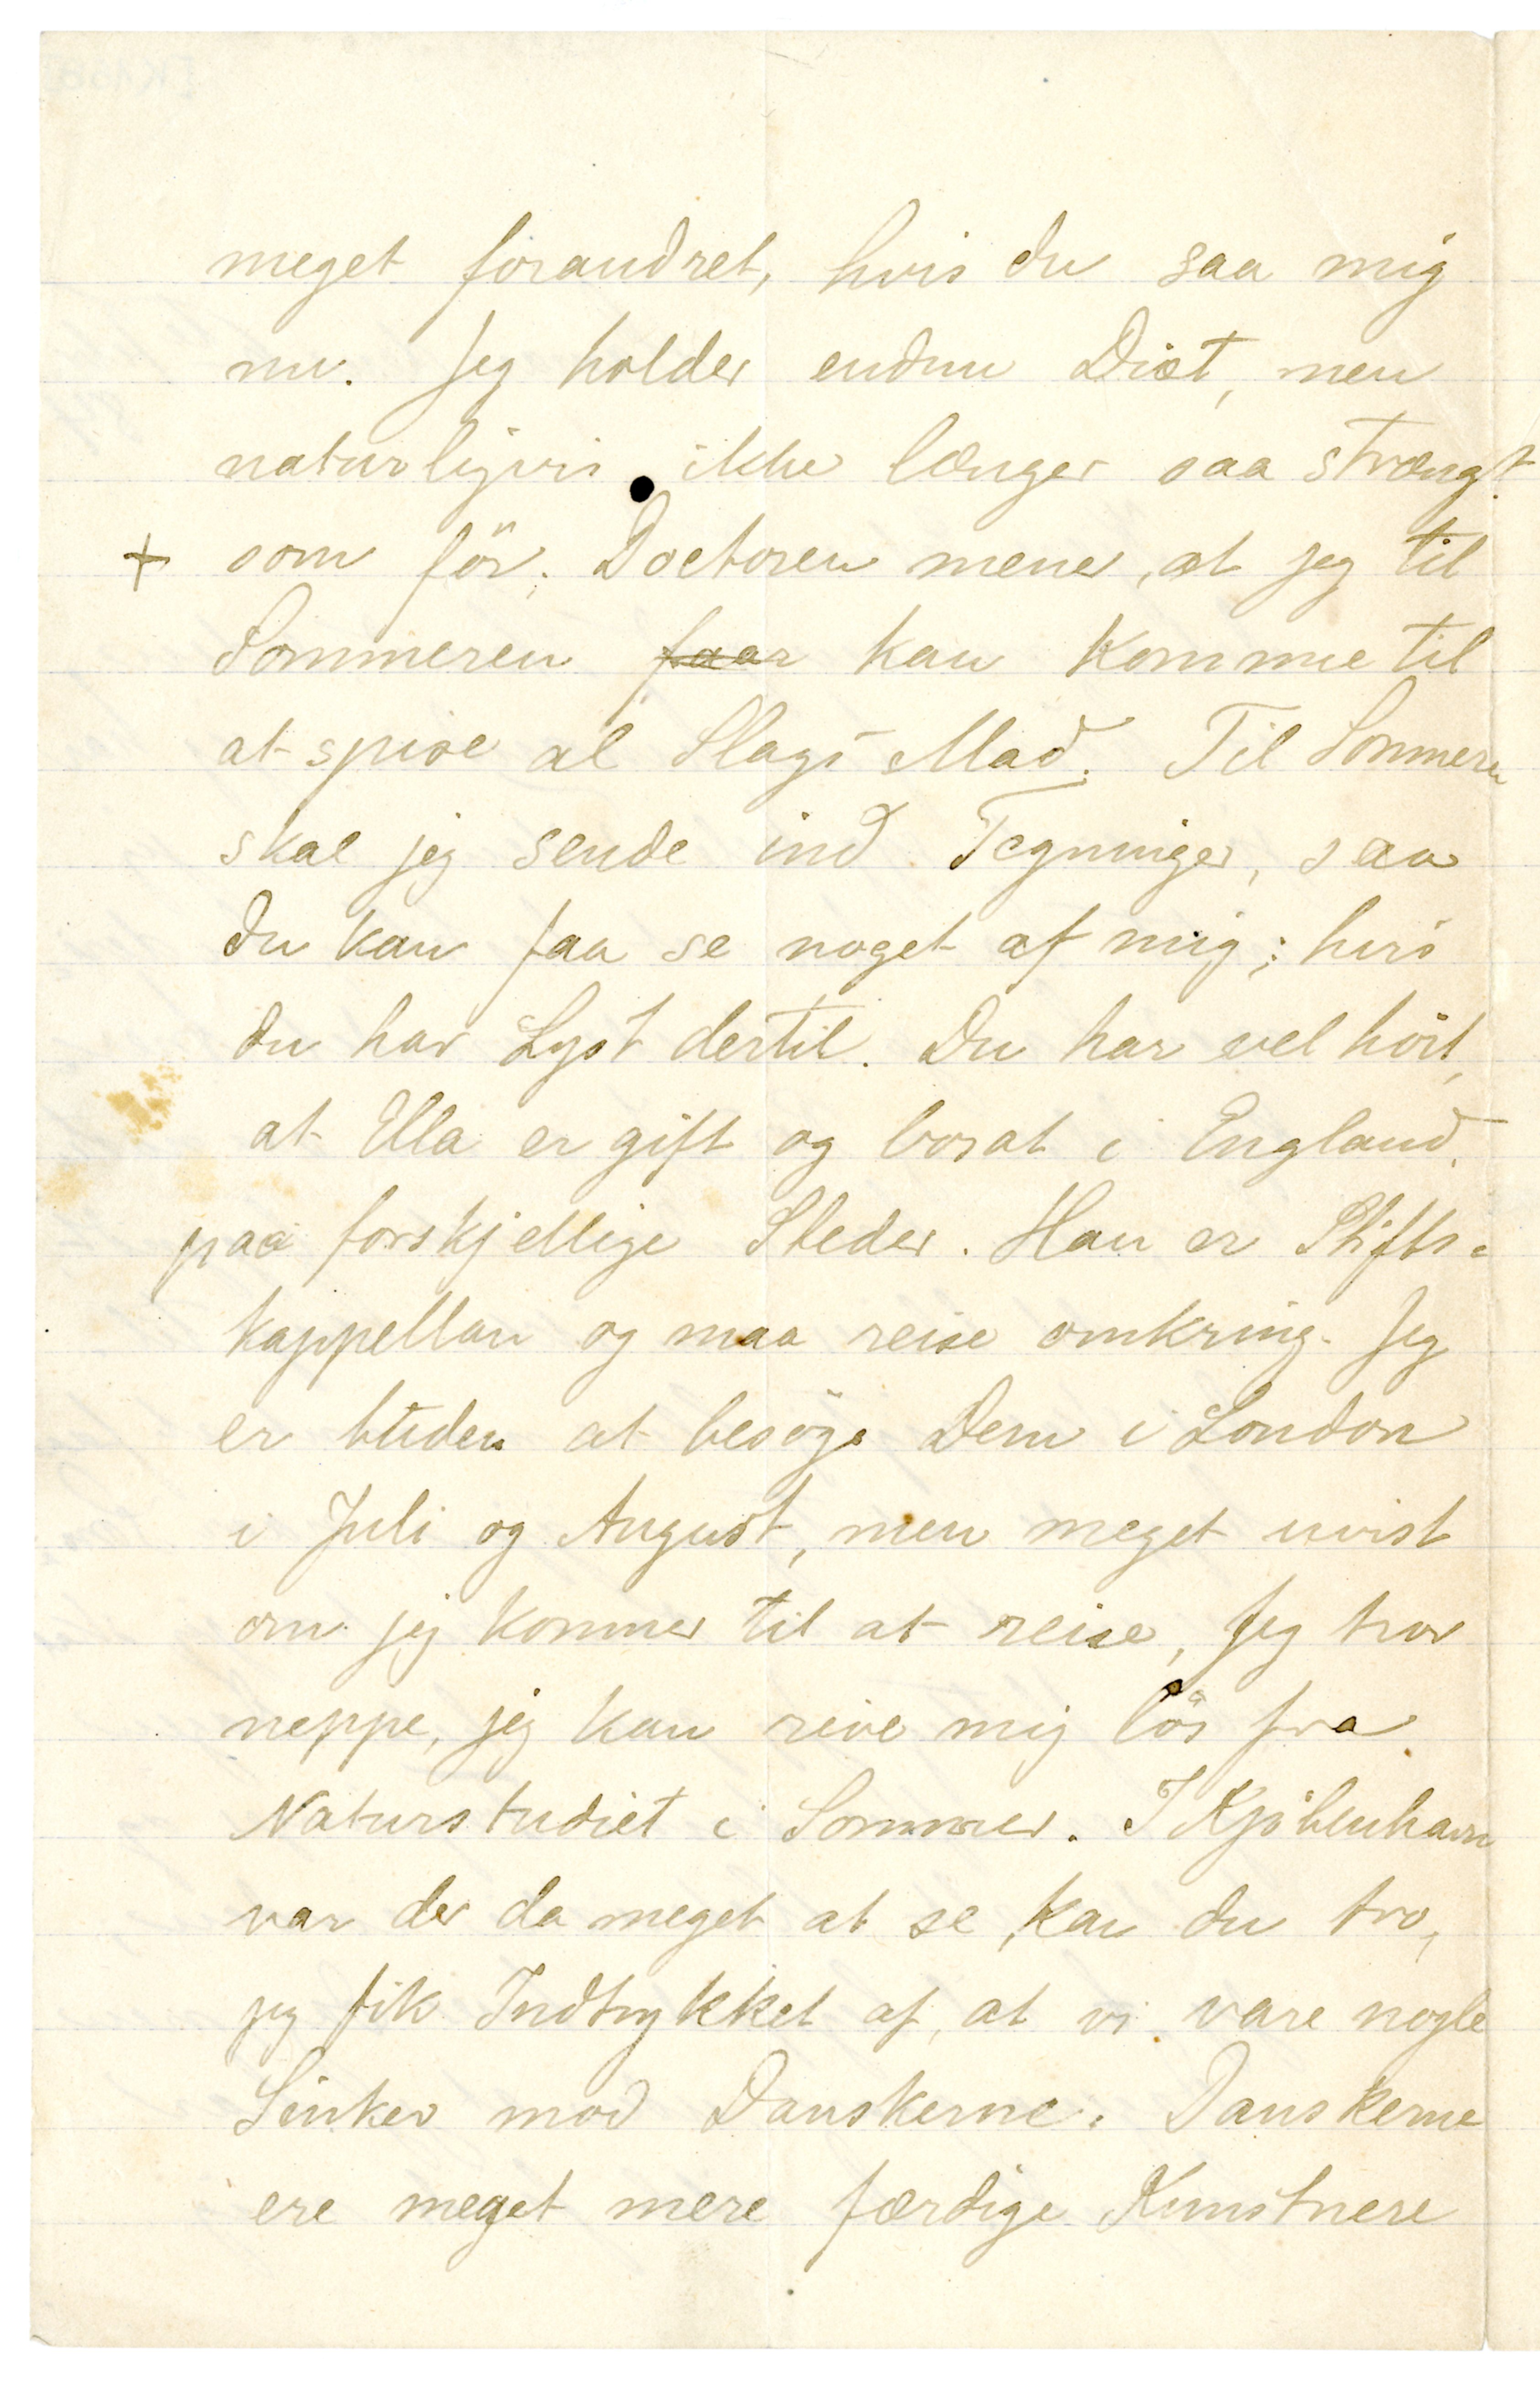 meget forandret, hvis du saa mig
nu. Jeg holder endnu Diæt, men
naturligvis ikke længer saa strængt
+ som för. Doctoren mener, at jeg til
Sommeren faar kan komme til
at spise al Slags Mad. Til Sommeren
skal jeg sende ind Tegninger, saa
du kan faa se noget af mig; hvis
du har Lyst dertil. Du har vel hört,
at Ella er gift og bosat i England,
paa forskjellige Steder. Han er Stifts=
kappellan og maa reise omkring. Jeg
er buden at besöge Dem i London
i Juli og August, men meget uvist
om jeg kommer til at reise, Jeg tror
neppe, jeg kan rive mig lös fra
Naturstudiet i Sommer. I Kjöbenhavn
var der da meget at se, kan du tro,
jeg fik Indtrykket af, at vi vare nogle
Sinker mod Danskerne. Danskerne
ere meget mere færdige Kunstnere